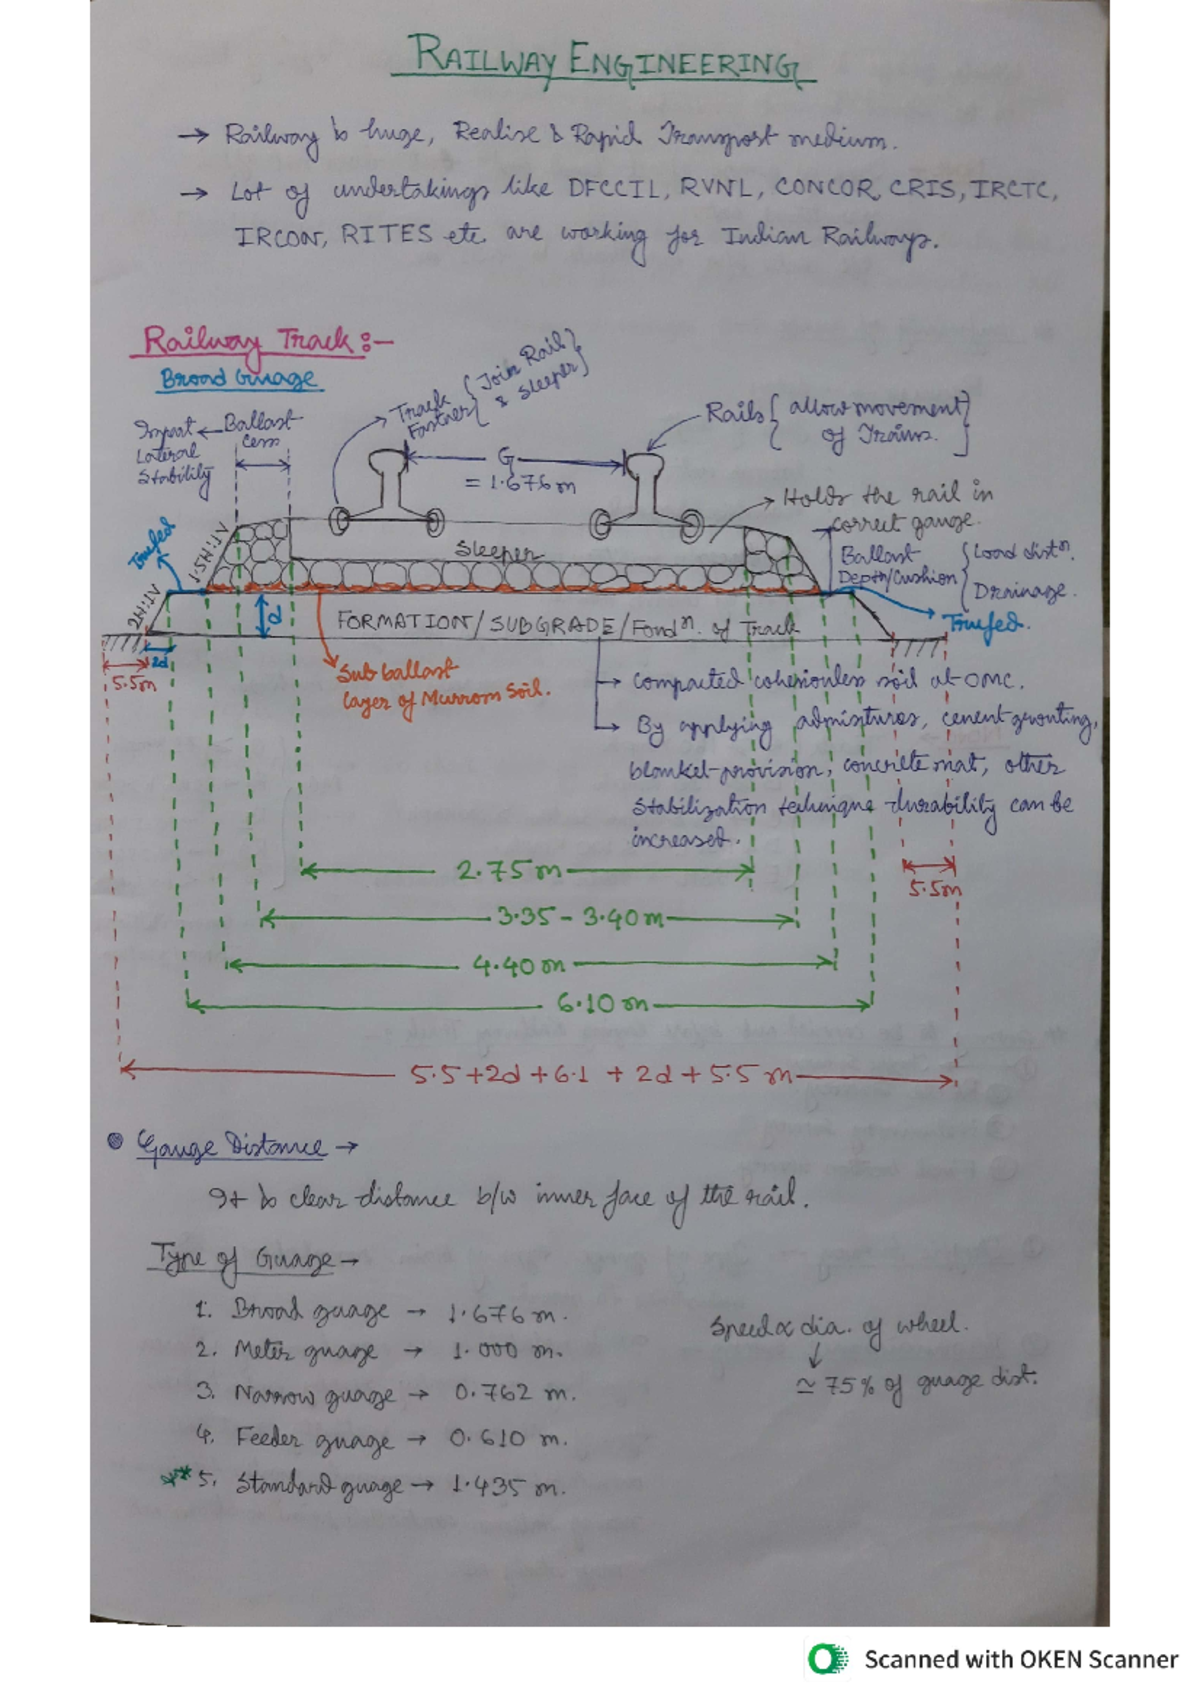 RAILWAY ENGINEERING
→ Railway is huge, Realise & Rapid Transport medium.
→ Lot of undertakings like DFCCIL, RVNL, CONCOR, CRIS, IRCTC,
IRCON, RITES etc. are working for Indian Railways.
Railway Track :-
Broad Guage
Impart ← Ballast
Lateral Cess
Stability
Track Fastner { Join Rail & Sleeper }
Rails { allow movement of Trains. }
G
= 1.676 m
→ Holds the rail in
correct gauge.
Turfed
1.5H:1V
2H:1V
Sleeper
Ballast Depth/Cushion { Load distⁿ. Drainage.
d
FORMATION/SUBGRADE/Fondⁿ. of Track
Turfed.
2d
5.5m
Sub ballast
layer of Murrom Soil.
→ Compacted cohesionless soil at OMC.
→ By applying admixtures, cement grouting,
blanket provision, concrete mat, other
stabilization technique durability can be
increased.
2.75m
5.5m
3.35 - 3.40m
4.40m
6.10m
5.5+2d+6.1 + 2d+5.5 m
Gauge Distance →
It is clear distance b/w inner face of the rail.
Type of Guage →
1. Broad guage → 1.676 m.
2. Meter guage → 1.000 m.
3. Narrow guage → 0.762 m.
4. Feeder guage → 0.610 m.
** 5. Standard guage → 1.435 m.
Speed ∝ dia. of wheel.
↓
≃ 75% of guage dist.
Scanned with OKEN Scanner